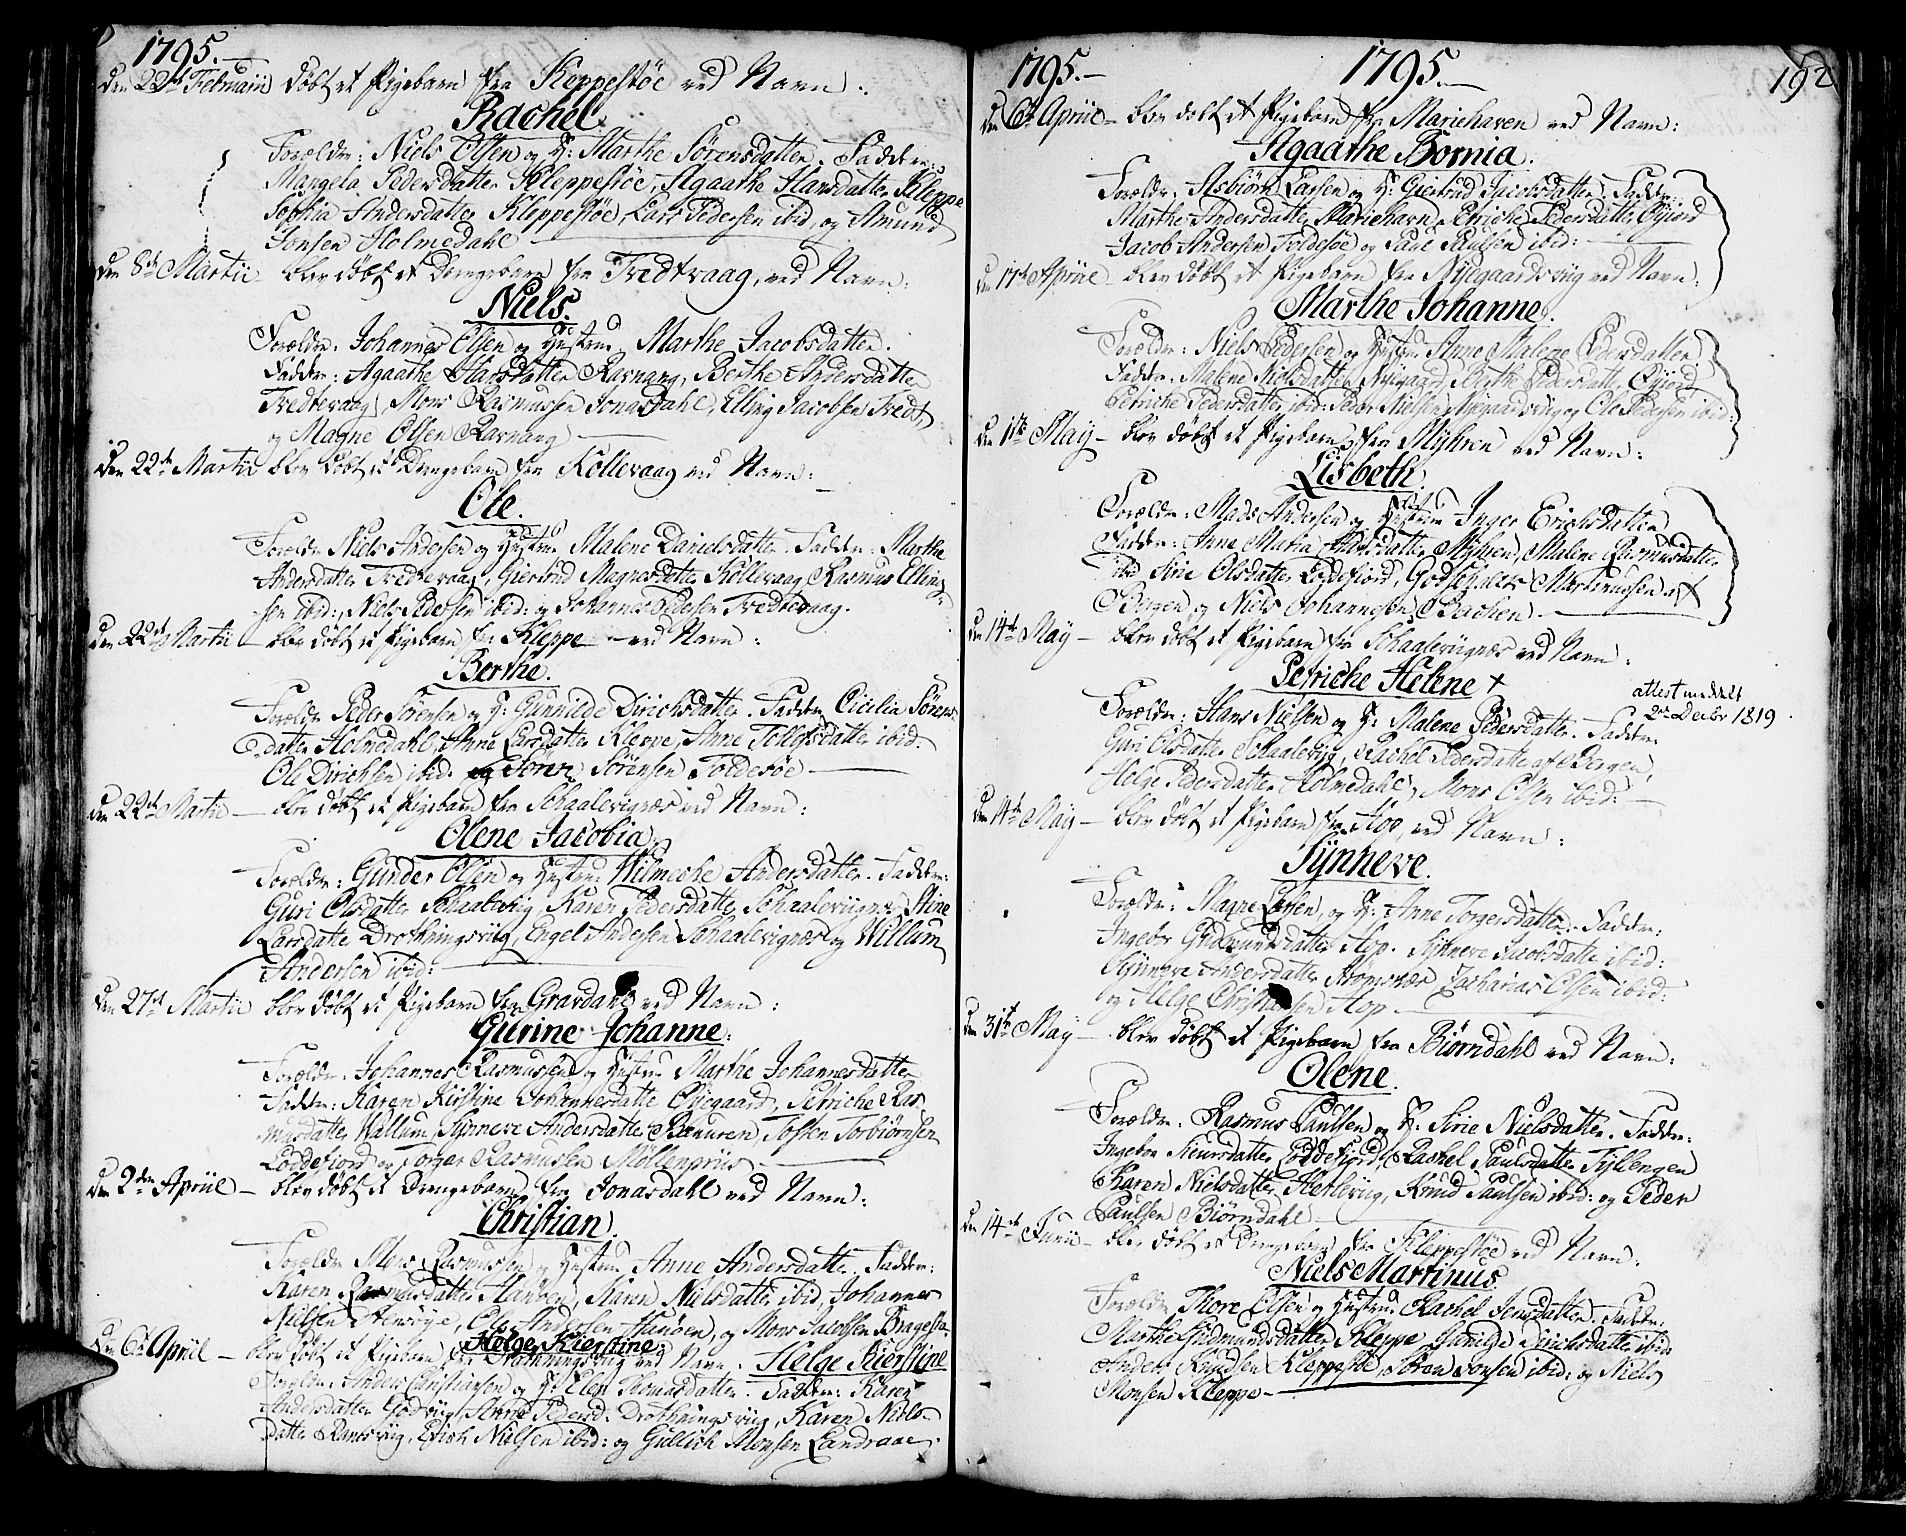 1795.
den 22de Februarii døbt et Pigebarn fra Kleppestøe ved Navn:
Rachel
Forældre: Niels Olsen og H: Marthe Sørensdatter. Faddere:
Mangela Pedersdatter Kleppestøe, Agaathe Hansdatter Kleppe
Sophia Andersdatter Kleppestøe, Lars Pedersen ibid, og Amund
Jonsen Holmedahl
den 8de Martii blev døbt et Drengebarn fra Tredtvaag, ved Navn:
Niels.
Forældre: Johannes Olsen og Hustrue Marthe Jacobsdatter.
Faddere: Agaathe Hansdatter Ravnang, Berthe Andersdatter
Tredtevaag, Mons Rasmussen Jonasdahl, Elling Jacobsen Tredt,
og Magne Olsen Ravnang
den 22de Martii blev døbt et Drengebarn fra Kollevaag ved Navn:
Ole.
Forældre Niels Andersen og Hustrue Malene Danielsdatter. Faddere: Marthe
Andersdatter Tredtevaag, Giertrud Magnesdatter Kollevaag, Rasmus Elling-
sen ibid:, Niels Pedersen ibid: og Johannes Pedersen Tredtevaag.
den 22de Martii blev døbt et Pigebarn fra Kleppe ved Navn:
Berthe.
Forældre Peder Sørensen og H: Gunnilde Dirichsdatter. Faddere Cicilia Sørens-
datter Holmedahl, Anne Larsdatter Kleppe, Anne Tollofsdatter ibid.
Ole Dirichsen ibid. og Søren Sørensen Foldesøe
den 22de Martii blev døbt et Pigebarn fra Schaalevignæs ved Navn:
Olene Jacobia.
Forældre: Gunder Olsen og Hustrue Wilmeche Andersdatter. Faddere:
Guri Olsdatter Schaalevig, Karen Pedersdatter Schaaleviignæs, Stine
Larsdatter Drothningsviig, Engel Andersen Schaalevignæs og Willum
Andersen ibid:
den 27de Martii blev døbt et Pigebarn fra Gravdahl ved Navn:
Gurine Johanne:
Forældre: Johannes Rasmussen og Hustrue Marthe Johannesdatter
Faddere: Karen Kirstine Johannesdatter Nyegaard, Petriche Ras-
musdatter Wallum, Synneve Andersdatter, Tosten Torbiørnsen
Loddefiord og Torger Rasmussen Møllenpriis
den 2den Apriil blev døbt et Drengebarn fra Jonasdahl ved Navn:
Christian.
Forældre Mons Rasmussen og Hustrue Anne Andersdatter. Faddere:
Karen Rasmusdatter Hanøen, Karen Nielsdatter ibid, Johannes
Nilsen, Ole Andersen Hanøen, og Mons Jacobsen Bragesta-
Helge Kierstine
den 6te Apriil blev døbt et Pigebarn fra Drothningsviig ved Navn: Helge Kierstine
Forældre: Anders Christiansen og H: Elen Thomasdatter. Faddere: Karen
Andersdatter Godviig, Anne Pedersd: Drothningsviig, Karen Niels-
datter, Erich Nielsen ibid: og Gullich Monsen Landraae.
1795. 1795. 192
den 6te Apriil blev døbt et Pigebarn fra Mariehaven ved Navn:
Agaathe Bornia.
Forældre: Asbiørn Larsen og H: Giertrud Jacobsdatter. Faddere:
Marthe Andersdatter Mariehavn, Petriche Pedersdatter
Jacob Andersen Foldesøe og Paul Paulsen ibid:
den 17de Apriile blev døbt et Pigebarn fra Nyegaardsviig ved Navn:
Marthe Johanne.
Forældre: Niels Pedersen og Hustrue Anne Malene Pedersdatter
Faddere: Malene Nielsdatter Nyegaard, Berthe Pedersdatter
Petriche Pedersdatter ibid: Peder Nielsen Nyegaardsviig og Ole Pedersen ibid:
den 1ste May blev døbt et Pigebarn fra Myhren ved Navn:
Lisbeth.
Forældre: Mads Andersen og Hustrue Inger Erichsdatter
Faddere: Anne Maria Madsdatter Myhren, Malene Rasmusdatter
ibid Sirie Olsdatter Loddefiord, Godschalch Martinussen af
Bergen og Niels Johannesen Bachen.
den 14de May blev døbt et Pigebarn fra Schaaleviignæs ved Navn:
Petriche Helene +
attest meddelt
2den Decbr 1819.
Forældre: Hans Nielsen og H: Malene Pedersdatter. Faddere:
Guri Olsdatter Schaalevig, Rachel Pedersdatter af Bergen,
Helge Pedersdatter Holmedahl, Mons Olsen ibid:
den 14de May blev døbt et Pigebarn fra Hop, ved Navn:
Synneve.
Forældre: Magne Larsen, og H: Anne Torgersdatter. Faddere:
Ingebr Gudmundsdatter Hop. Synneve Jacobsdatter ibid:
Synneve Andersdatter, Zacharias Olsen ibid:
og Helge Christiansen Hop.
den 31te May blev døbt et Pigebarn fra Biørndahl ved Navn:
Olene.
Forældre: Rasmus Paulsen og H: Sirie Nielsdatter. Faddere:
Ingebor Steursdatter Loddefiord, Rachel Paulsdatter Tyllengen
Karen Nielsdatter Hetleviig, Knud Paulsen ibid: og Peder
Paulsen Biørndahl
den 14de Junii blev døbt et Drengebarn fra Kleppestøe ved Navn:
Niels Martinus
Forældre Thore Olsen og Hustrue Rachel Jonsdatter. Faddere:
Marthe Gudmundsdatter Kleppe Gunilde Dirichsdatter ibid:
Anders Knudsen Kleppestøe, Søren Jonsen ibid: og Niels
Monsen Kleppe